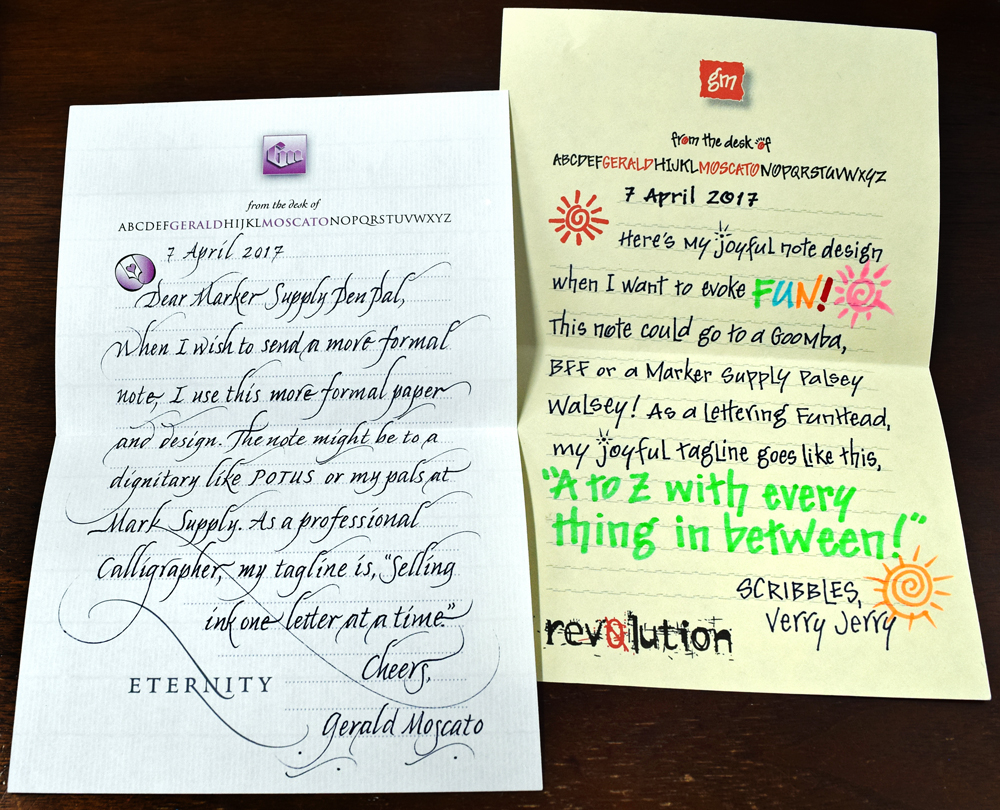 Gm
from the desk of
ABCDEFGERALDHIJKLMOSCATONOPQRSTUVWXYZ
7 April 2017
Dear Marker Supply Pen Pal,
When I wish to send a more formal
note, I use this more formal paper
and design. The note might be to a
dignitary like POTUS or my pals at
Mark Supply. As a professional
Calligrapher, my tagline is, "Selling
ink one letter at a time"
Cheers,
ETERNITY
Gerald Moscato
gm
from the desk of
ABCDEFGERALDHIJKLMOSCATONOPQRSTUVWXYZ
7 April 2017
Here's my joyful note design
when I want to evoke FUN!
This note could go to a Goomba,
BFF or a Marker Supply Palsey
Walsey! As a Lettering FunHead,
my joyful tagline goes like this,
"A to Z with every
thing in between!"
SCRIBBLES,
Verry Jerry
revolution